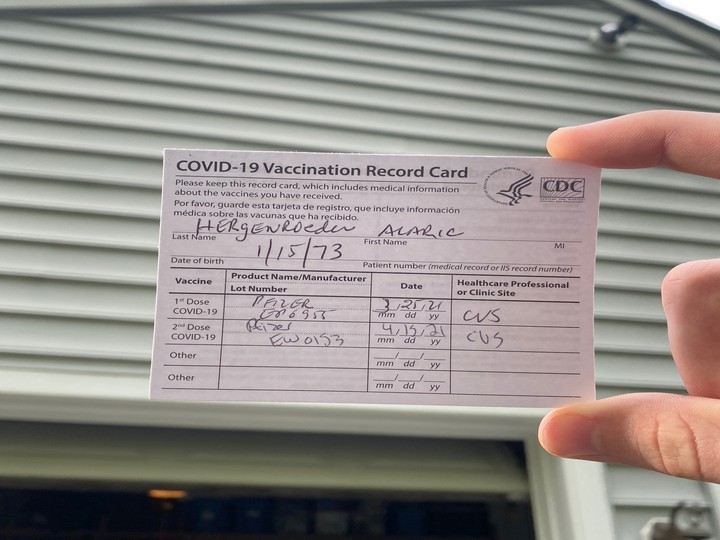 COVID-19 Vaccination Record Card
CDC
Please keep this record card, which includes medical information
about the vaccines you have received.
Por favor, guarde esta tarjeta de registro, que incluye información
médica sobre las vacunas que ha recibido.
HERgENRoeder ALARIC
Last Name First Name MI
1/15/73
Date of birth Patient number (medical record or IIS record number)
Vaccine Product Name/Manufacturer Date Healthcare Professional
Lot Number or Clinic Site
1st Dose PFIZER 3/25/21 CVS
COVID-19 mm dd yy
2nd Dose Pfizer 4/15/21 CVS
COVID-19 EW0153 mm dd yy
Other
mm dd yy
Other
mm dd yy